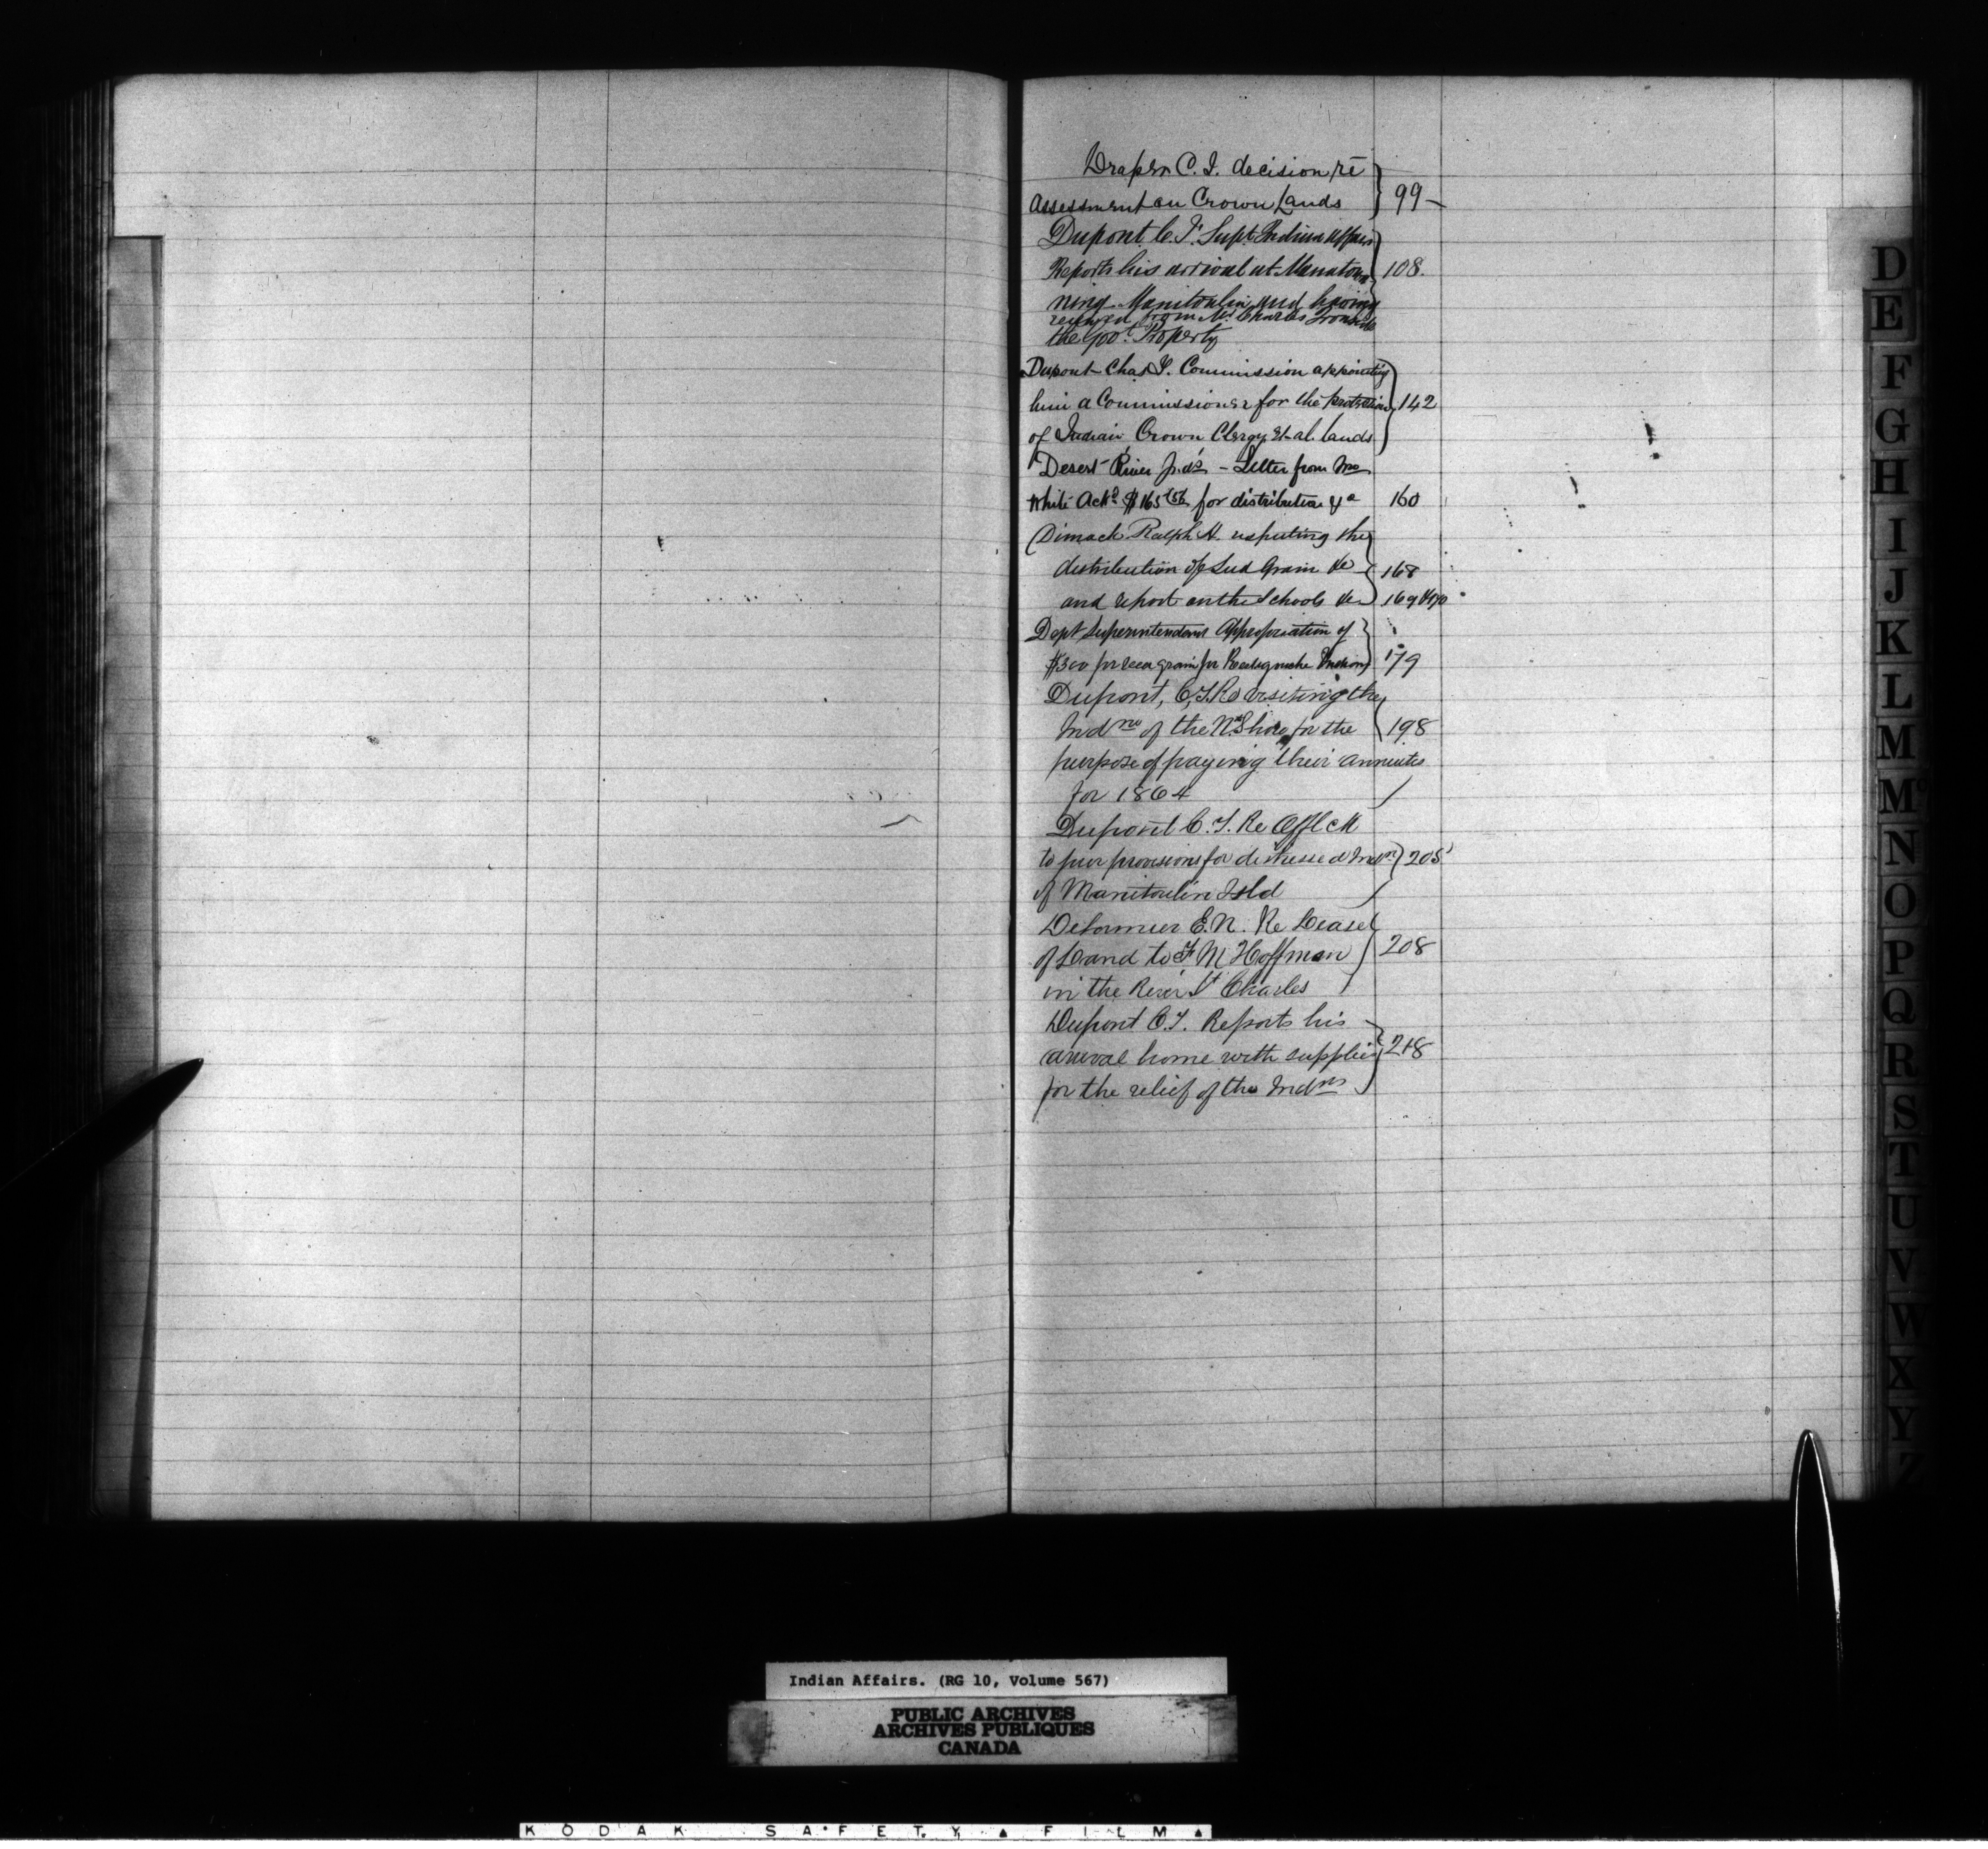 Draper C. J. decision re
assessment on Crown Lands 99
Dupont C. T. Supt Indian Affairs
Reports his arrival at Manatowa 108
ning Manitoulin and having
received from Mr Charles Ironside
the govt Property
Dupont Chas T. Commission appointing
him a Commissioner for the protection 142
of Indian Crown Clergy et al lands
Desert River Ind's - Letter from
White Ackg $165 for distribution &c 160
Dimock Ralph H. respecting the
distribution of Seed Grain &c 168
and report on the Schools &c 169 & 170
Dept Superintendent Appropriation of
$300 for seed grain for Restigouche Indians 179
Dupont, C, T. Re visiting the
Indns of the N. Shore for the 198
purpose of paying their annuities
for 1864
Dupont C. T. Re
to pur provisions for distressed Indns 205
of Manitoulin Isld
DeLormier E. N. Re Lease
of Land to F M Hoffman 208
in the River St Charles
Dupont C. T. Reports his
arrival home with supplies 218
for the relief of the Indns
D
E
F
G
H
I
J
K
L
M
Mc
N
O
P
Q
R
S
T
U
V
W
X
Y
Z
Indian Affairs. (RG 10, Volume 567)
PUBLIC ARCHIVES
ARCHIVES PUBLIQUES
CANADA
KODAK SAFETY FILM